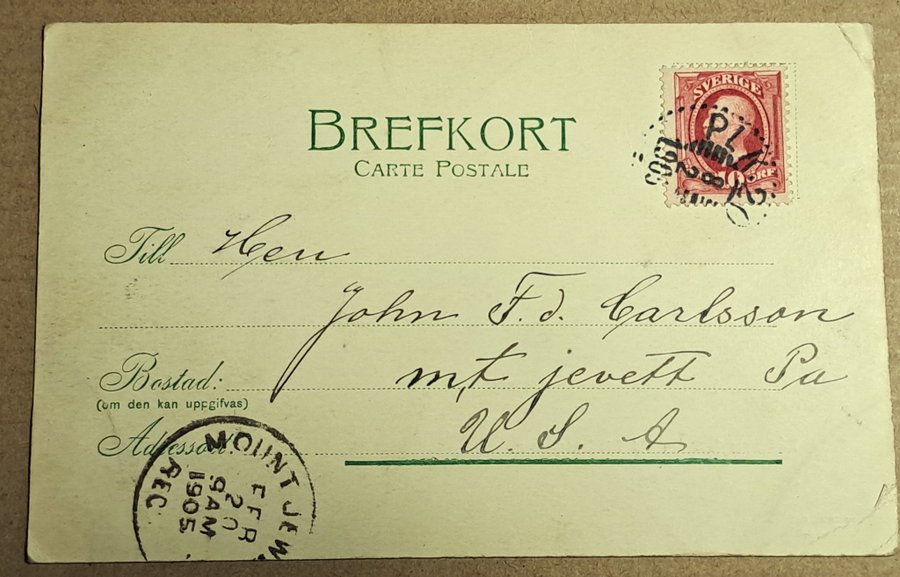 BREFKORT
CARTE POSTALE
SVERIGE
10 ÖRE
PZ
2 8
1905
Till Herr
John F.d. Carlsson
Bostad: mt jevett Pa
(om den kan uppgifvas)
Adresson: U. S. A
MOUNT JEW
FEB
20
9AM
1905
REC